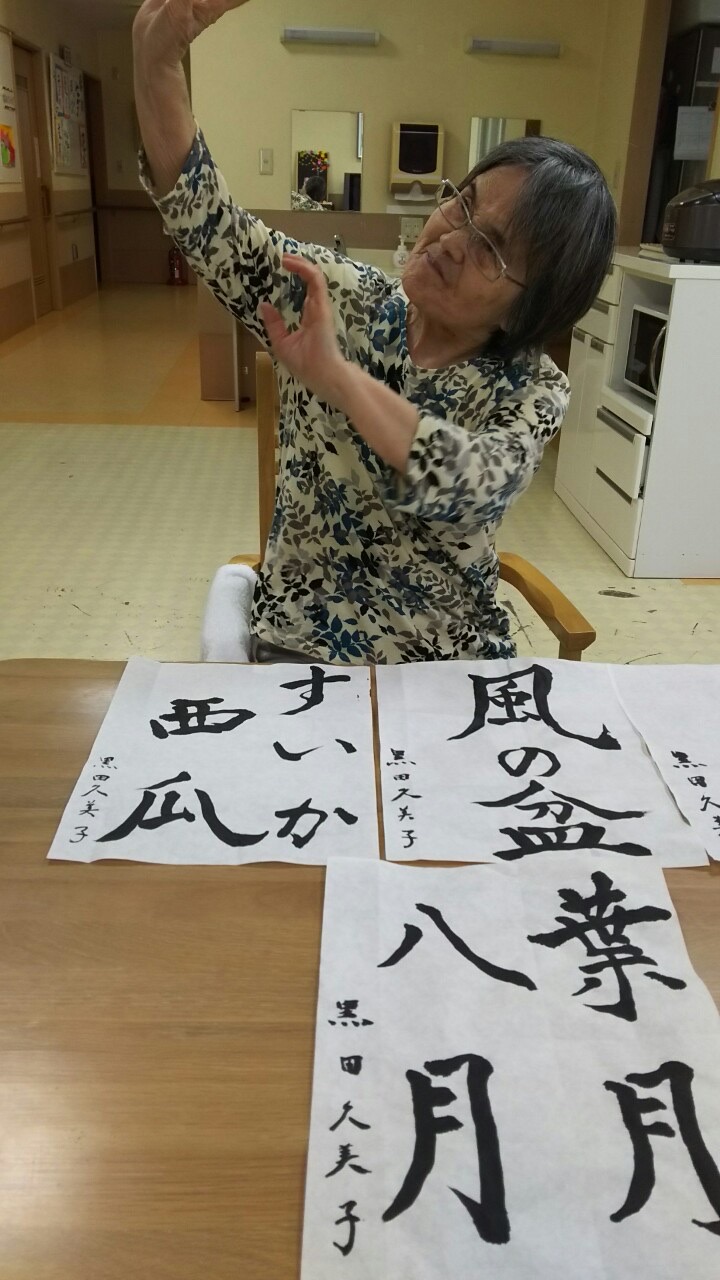 すいか
西瓜
黒田久美子
風の盆
黒田久美子
黒田久美
葉月
八月
黒田久美子